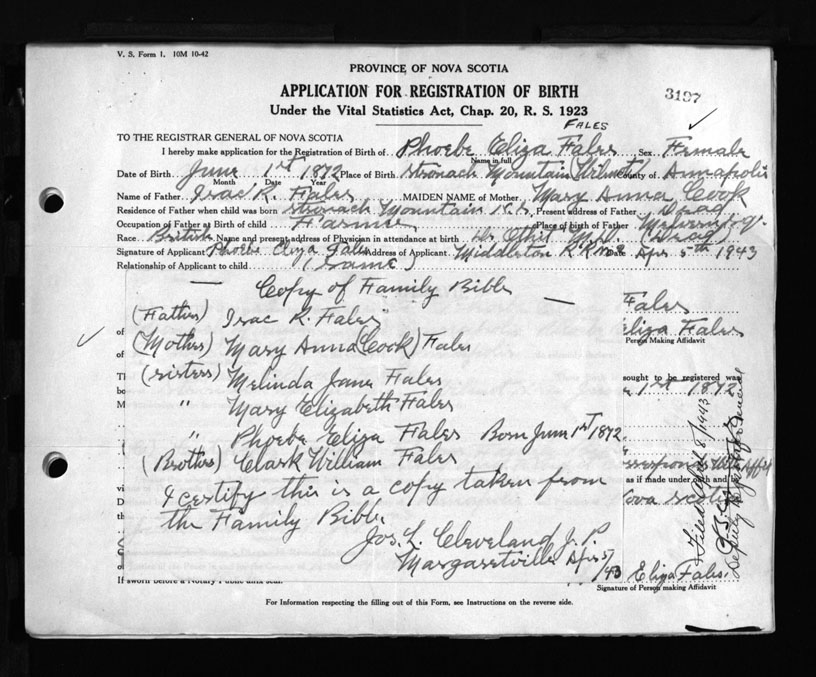 V. S. Form 1. 10M 10-42
PROVINCE OF NOVA SCOTIA
APPLICATION FOR REGISTRATION OF BIRTH
3197
Under the Vital Statistics Act, Chap. 20, R. S. 1923
FALES
TO THE REGISTRAR GENERAL OF NOVA SCOTIA
I hereby make application for the Registration of Birth of Phoebe Eliza Fales Sex Female
Name in full
Date of Birth June 1st 1872 Place of Birth Stronach Mountain (Wilmot) County of Annapolis
Month Date Year
Name of Father Isac R. Fales MAIDEN NAME of Mother Mary Anna Cook
Residence of Father when child was born Stronach Mountain N.S. Present address of Father Dead
Occupation of Father at Birth of child Farmer Place of birth of Father
Race British Name and present address of Physician in attendance at birth Dr. M.D. (Dead)
Signature of Applicant Phoebe Eliza Fales Address of Applicant Middleton R.R. No 2 Date Apr. 5th 1943
Relationship of Applicant to child (Same)
— Copy of Family Bible —
Fales
(Father) Isac R. Fales
Eliza Fales
of
Person Making Affidavit
(Mother) Mary Anna (Cook) Fales
of
(Sisters) Melinda Jane Fales
ought to be registered was
be
e 1st 1872
" Mary Elizabeth Fales
M
" Phoebe Eliza Fales Born June 1st 1872.
(Brother) Clark William Fales
as if made under oath and
I certify this is a copy taken from
Nova Scotia
the Family Bible.
Jos. L. Cleveland J. P.
Margaretville Apr 5/
/43 Eliza Fales.
If sworn before a Notary Public affix seal.
Signature of Person making Affidavit
Filed April 8/1943
Deputy Registrar General
For Information respecting the filling out of this Form, see Instructions on the reverse side.